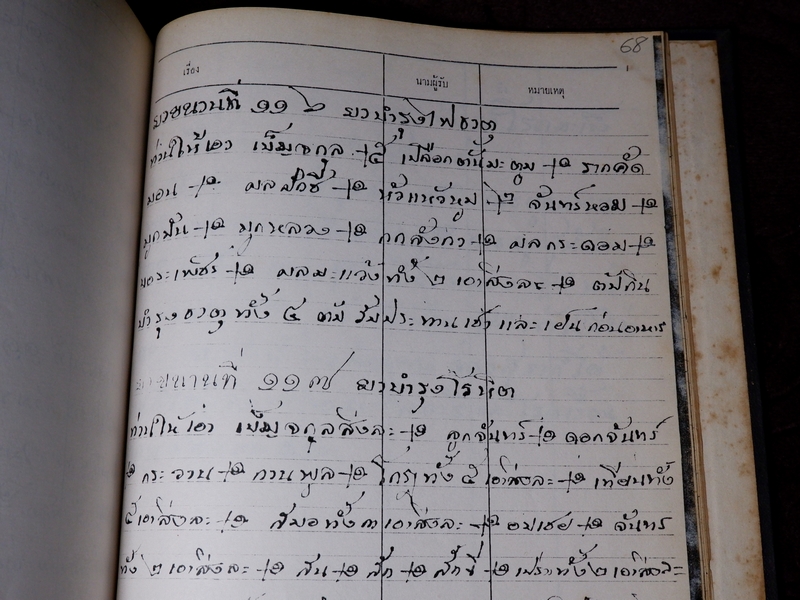 68
เรื่อง นามผู้รับ หมายเหตุ
ยาขนานที่ ๑๑๖ ยาบำรุงไฟธาตุ
ท่านให้เอา เบ็ญจกูล -|- ๕ เปลือกต้นมะตูม -|- ๑ รากคัด
มอน -|- ๑ ผลผักชี -|- ๑ หัวแห้วหมู -|- ๒ จันทร์หอม -|- ๑
มูกมัน -|- ๑ มูกหลวง -|- ๑ กกลังกา -|- ๑ ผลกระดอม -|- ๑
บอระเพ็ชร -|- ๑ ผลมะแว้งทั้ง ๒ เอาสิ่งละ -|- ๑ ต้มกิน
บำรุงธาตุทั้ง ๔ ต้มรับประทานเช้าและเย็นก่อนอาหาร
ยาขนานที่ ๑๑๗ ยาบำรุงโลหิต
ท่านให้เอา เบ็ญจกูลสิ่งละ -|- ๑ ลูกจันทร์ -|- ๑ ดอกจันทร์
๑ กระวาน -|- ๑ กานพูล -|- ๑ โกฐทั้ง ๕ เอาสิ่งละ -|- ๑ เทียนทั้ง
๕ เอาสิ่งละ -|- ๑ สมอทั้ง ๓ เอาสิ่งละ -|- ๑ อบเชย -|- ๑ จันทร
ทั้ง ๒ เอาสิ่งละ -|- ๑ สน -|- ๑ สัก -|- ๑ สักขี -|- ๑ เปราะทั้ง ๒ เอาสิ่งละ